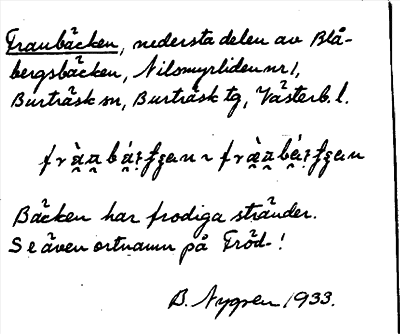 Fraubäcken, nedersta delen av Blå-
bergsbäcken, Nilsmyrliden nr 1,
Burträsk sn, Burträsk tg, Västerb. l.
Bäcken har frodiga stränder.
Se även ortnamn på Fröd-!
B. Nygren 1933.